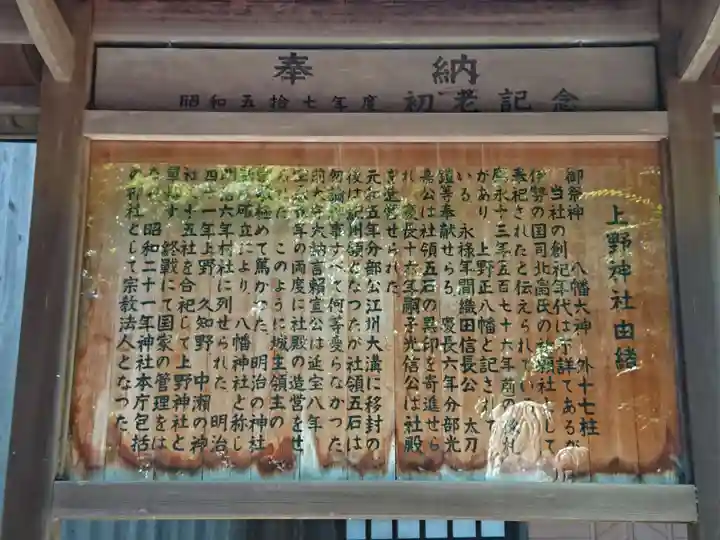 奉納
昭和五拾七年度 初老記念
上野神社由緒
御祭神 八幡大神 外十七柱
当社の創祀年代は不詳であるが
伊勢の国司北畠氏の祈願社として
奉祀されたと伝えられている
応永十三年五百七十六年前の棟札
があり 上野正八幡と記されて
いる 永禄年間織田信長公 太刀
鎧等奉献せらる 慶長六年分部光
嘉公は社領五石の黒印を寄進せら
れ 慶長十六年嗣子光信公は社殿
を造営せられた
元和五年分部公江州大溝に移封の
後は紀州領となったが社領五石は
何論 事すべて何等変らなかった
前大守大納言頼宣公は延宝八年
年の両度に社殿の造営をせ
られた このように城主領主の
敬極めて篤かった 明治の神社
確立により 八幡神社と称し
明治六年村社に列せられた 明治
四十一年上野 久知野 中瀬の神
社 十五社を合祀して上野神社と
単称す 終戦にて国家の管理をは
なれ 昭和二十一年神社本庁包括
の神社として宗教法人となった